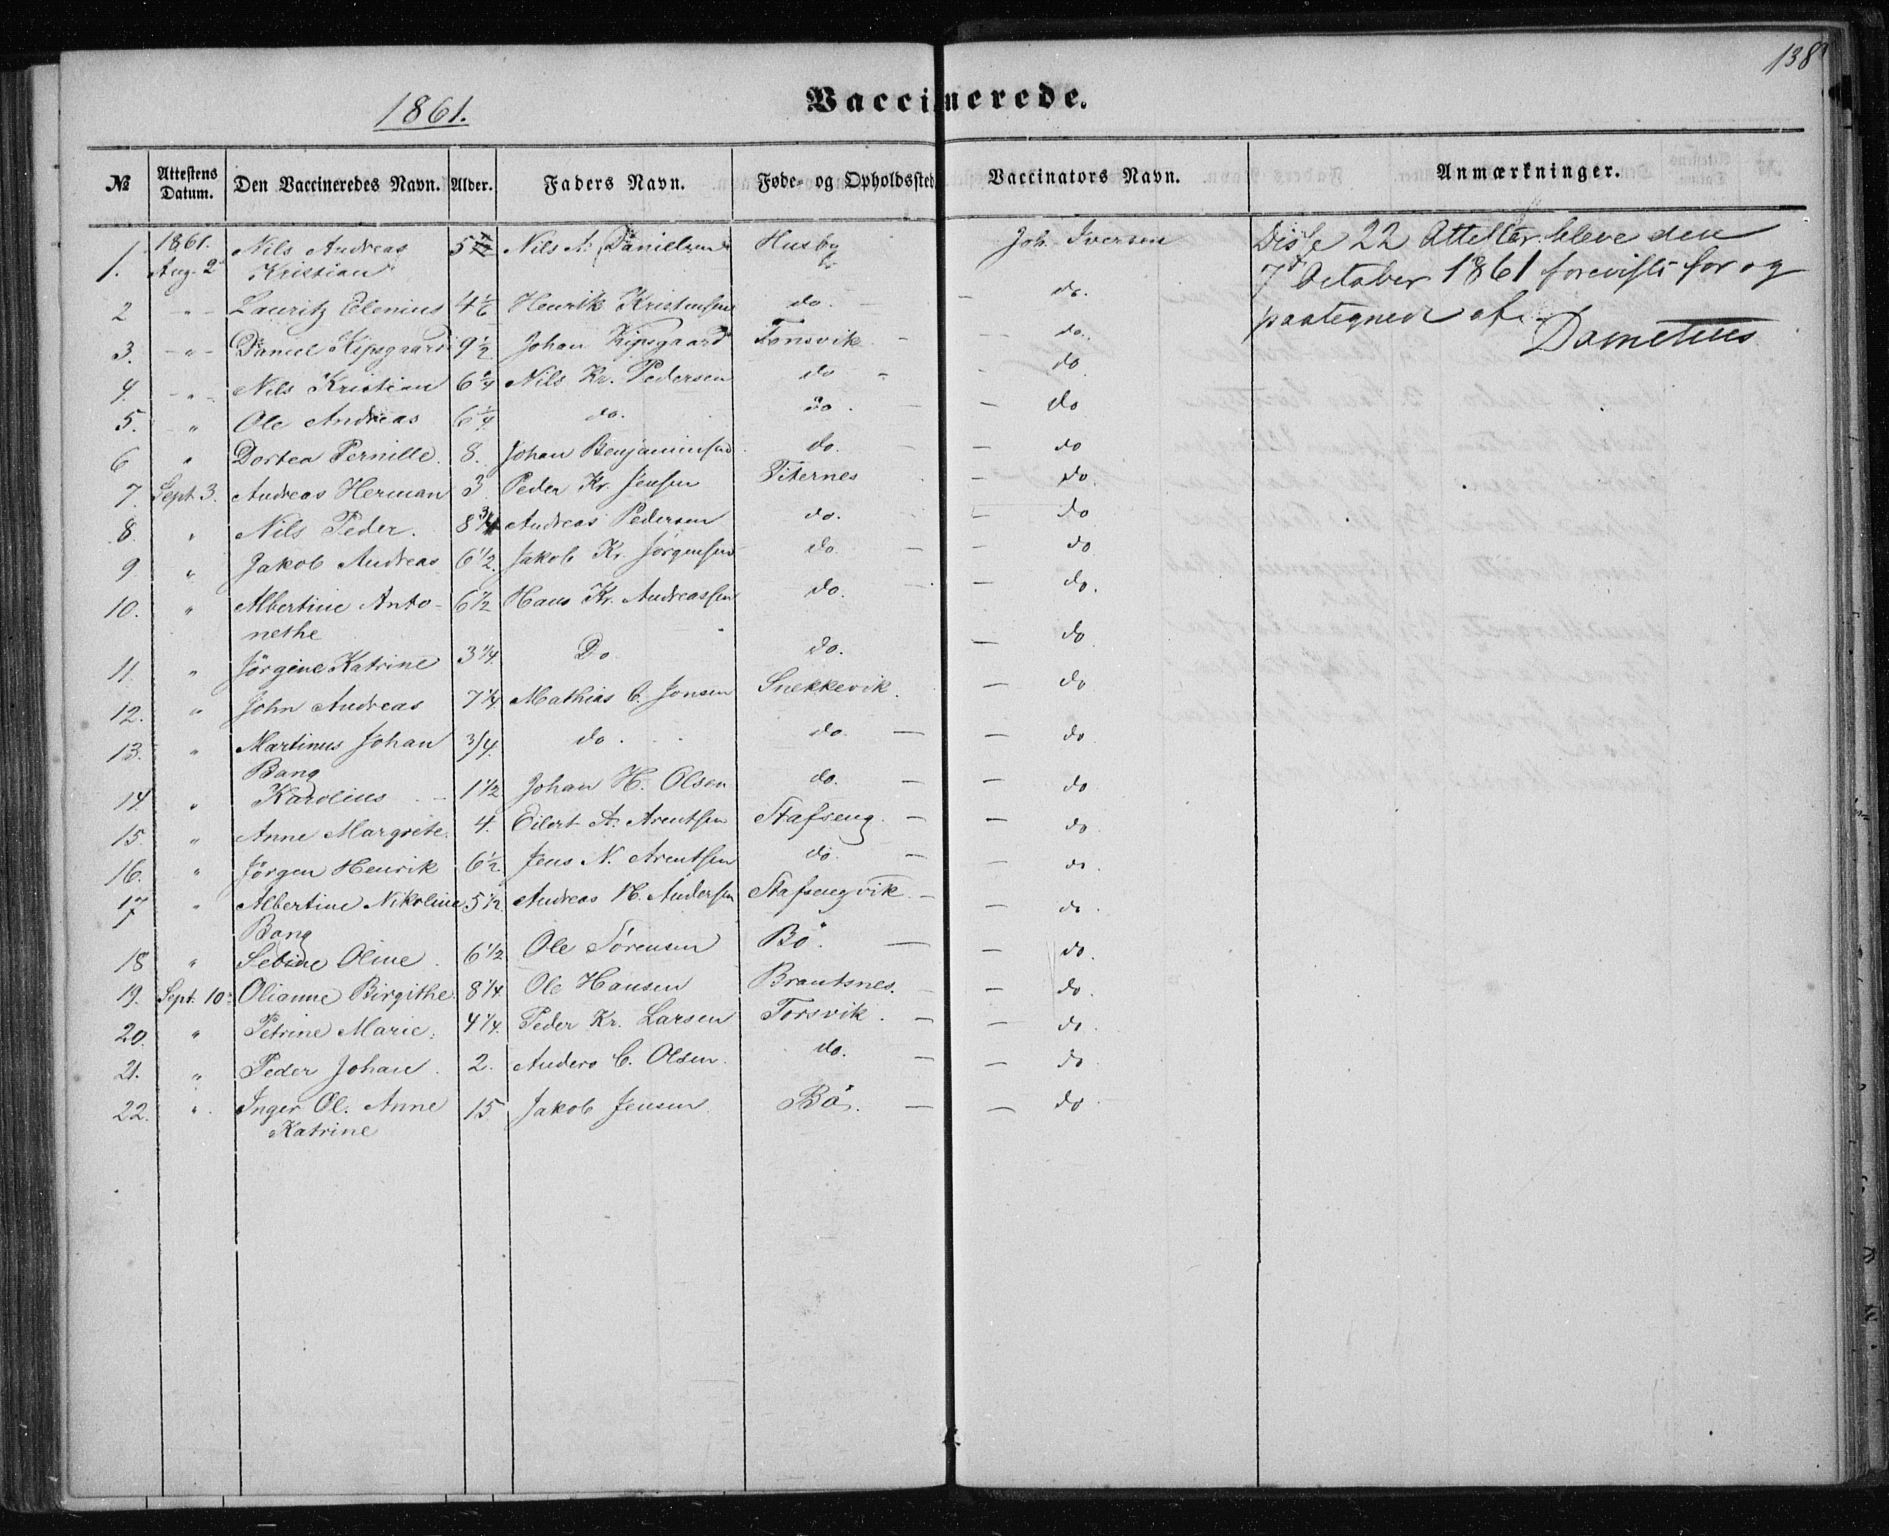 138
1861.
Vaccinerede.
№ Attestens Datum. Den Vaccineredes Navn. Alder. Faders Navn. Føde- og Opholdssted Vaccinators Navn. Anmærkninger.
1. 1861. Aug. 2 Nils Andreas 5 1/2 Nils A. Danielsen Husby Joh. Iversen Disse 22 Attester bleve den
Kristian 7de October 1861 foreviste for og
2 - " - Lauritz Elenius 4 1/2 Henrik Kristensen do. - do. paategnede af.
3. - " - Daniel Kipsgaard 9 1/2 Johan Kipsgaard Tonsvik - - do. Dometius
4. - " - Nils Kristian 6 3/4 Nils Kr. Pedersen do - do
5. - " Ole Andreas 6 1/4 do. do. - do
6 " Dortea Pernille. 8. Johan Benjaminsen do. - - do
7. Sept. 3. Andreas Herman 3 Peder Kr. Jensen Titernes - - do.
8. " Nils Peder. 8 3/4 Andreas Pedersen do. - - do
9 " Jakob Andreas 6 1/2. Jakob Kr. Jørgensen do - - do
10. " Albertine Anto- 6 1/2 Hans Kr. Andreassen do. - do.
nethe
11. " Jörgine Katrine 3 1/4. Do do. - do
12. " John Andreas 7 1/4 Mathias C. Jonsen Snekkevik. - do
13. " Martinus Johan 3/4. do. do. - - do
Bang
14. " Karolius 1 1/2 Johan H. Olsen do. - - do
15. " Anne Margrete. 4. Eilert A. Arentsen Stafseng. - - do
16. " Jörgen Henrik 6 1/2. Jens N. Arentsen do. - - do
17 " Albertine Nikoline 5 1/2. Andreas H. Andersen Stafsengvik. - - do.
Bang
18 " Sebine Oline. 6 1/2 Ole Sørensen Bö. - - do.
19. Sept. 10. Olianne Birgithe. 8 1/4. Ole Hansen Brautsnes. - - do.
20. " Petrine Marie. 4 1/4. Peder Kr. Larsen Torsvik. - - do.
21. " Peder Johan. 2. Anders C. Olsen. do. - - do
22. " Inger Ol. Anne 15 Jakob Jensen Bö. - - do
Katrine